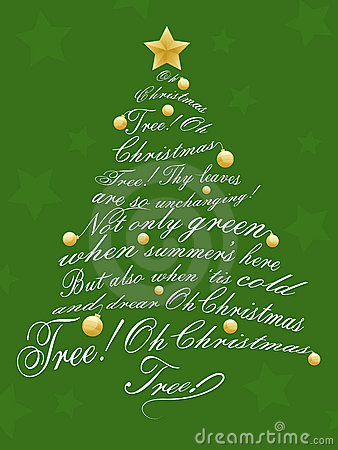 Oh
Christmas
Tree! Oh
Christmas
Tree! Thy leaves
are so unchanging!
Not only green
when summer's here
But also when 'tis cold
and drear Oh Christmas
Tree! Oh Christmas
Tree!
dreamstime.com